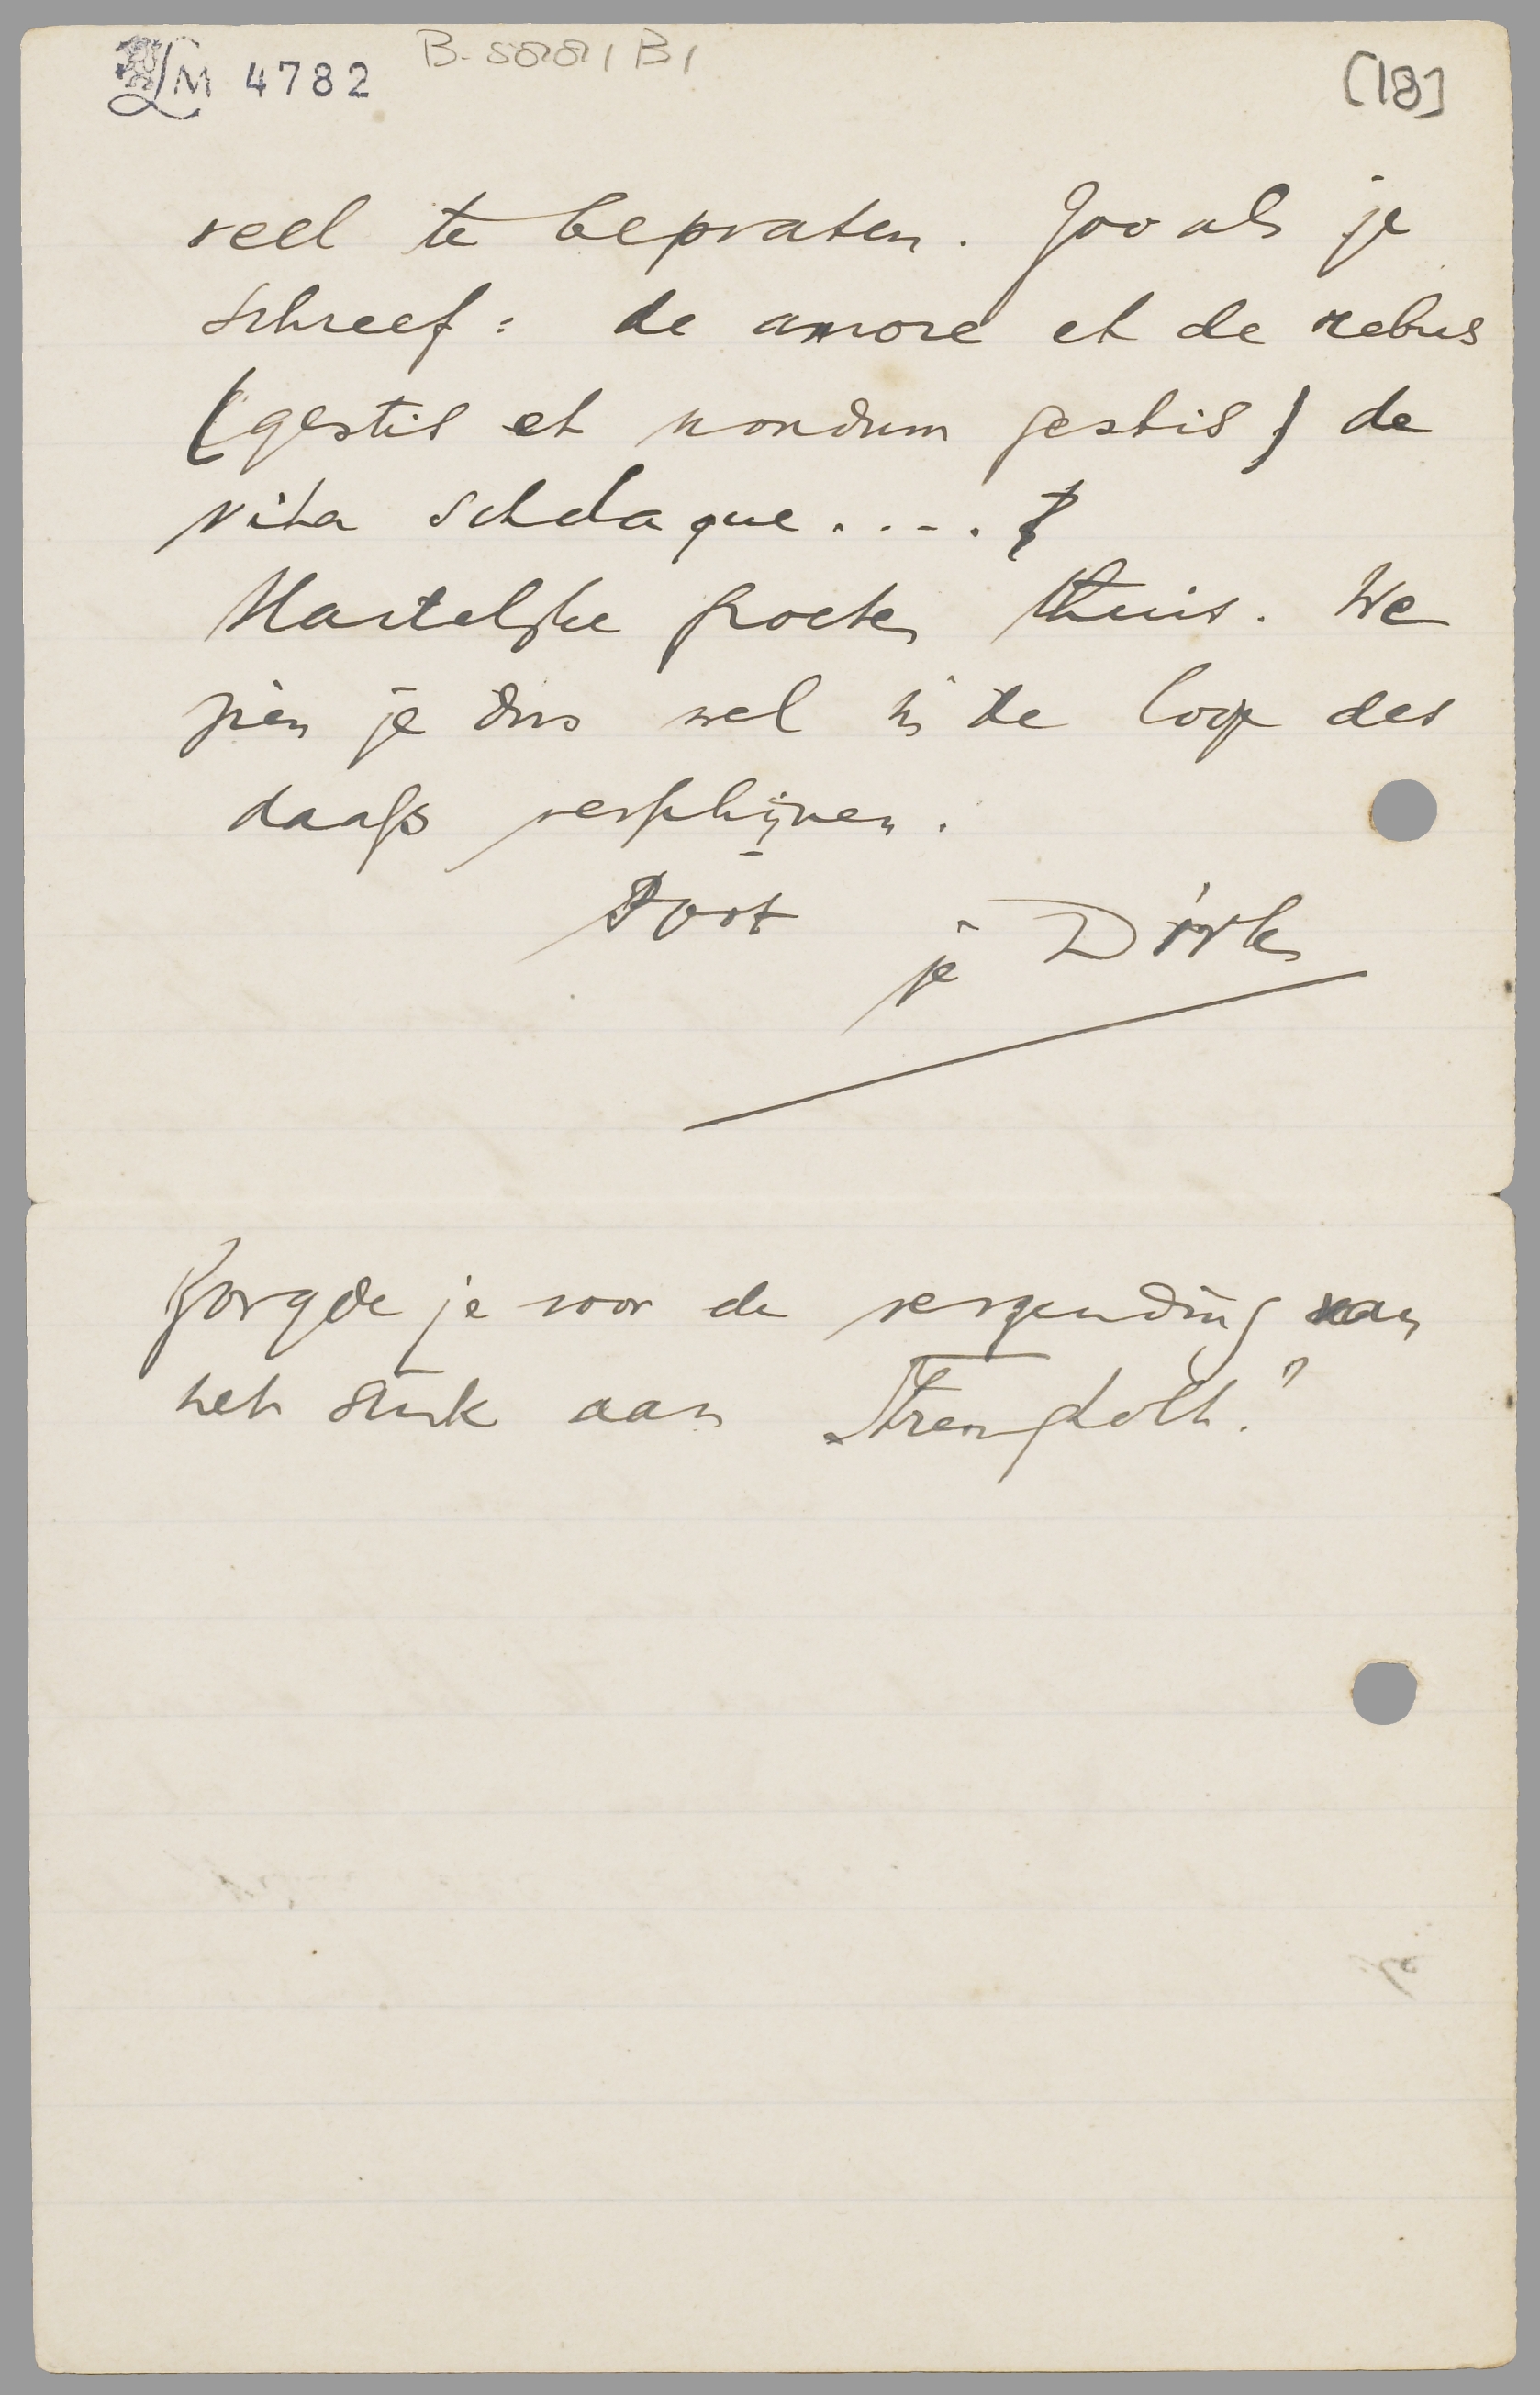 LM 4782 B. 5881 B1 [18]
veel te bepraten. Zooals je
schreef: de amore et de rebus
(gestis et nondum gestis) de
vita scholaque. . . . .
Hartelijke groeten thuis. We
zien je dus wel in de loop des
daags verschijnen.
Poot
je Dirk
Zorgde je voor de verzending van
het stuk aan Strengholt?